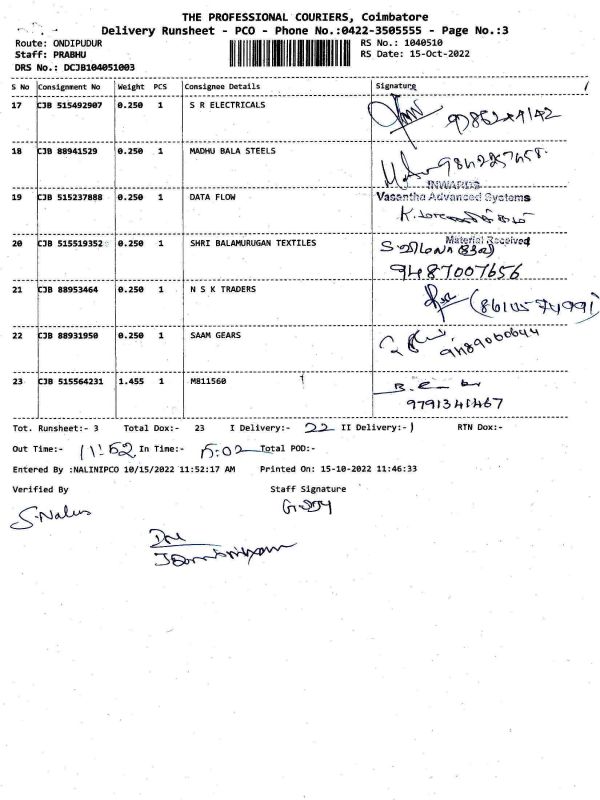 THE PROFESSIONAL COURIERS, Coimbatore
Delivery Runsheet - PCO - Phone No.:0422-3505555 - Page No.:3
Route: ONDIPUDUR RS No.: 1040510
Staff: PRABHU RS Date: 15-Oct-2022
DRS No.: DCJB104051003
S No Consignment No Weight PCS Consignee Details Signature
17 CJB 515492907 0.250 1 S R ELECTRICALS
18 CJB 88941529 0.250 1 MADHU BALA STEELS
INWARDS
19 CJB 515237888 0.250 1 DATA FLOW Vasantha Advanced Systems
Material Received
20 CJB 515519352 0.250 1 SHRI BALAMURUGAN TEXTILES
9487007656
21 CJB 88953464 0.250 1 N S K TRADERS
22 CJB 88931950 0.250 1 SAAM GEARS
9489000644
23 CJB 515564231 1.455 1 M811560
9791341467
Tot. Runsheet:- 3 Total Dox:- 23 I Delivery:- 22 II Delivery:- 1 RTN Dox:-
Out Time:- 11:52 In Time:- 15:02 Total POD:-
Entered By :NALINIPCO 10/15/2022 11:52:17 AM Printed On: 15-10-2022 11:46:33
Verified By Staff Signature
S.Nalini